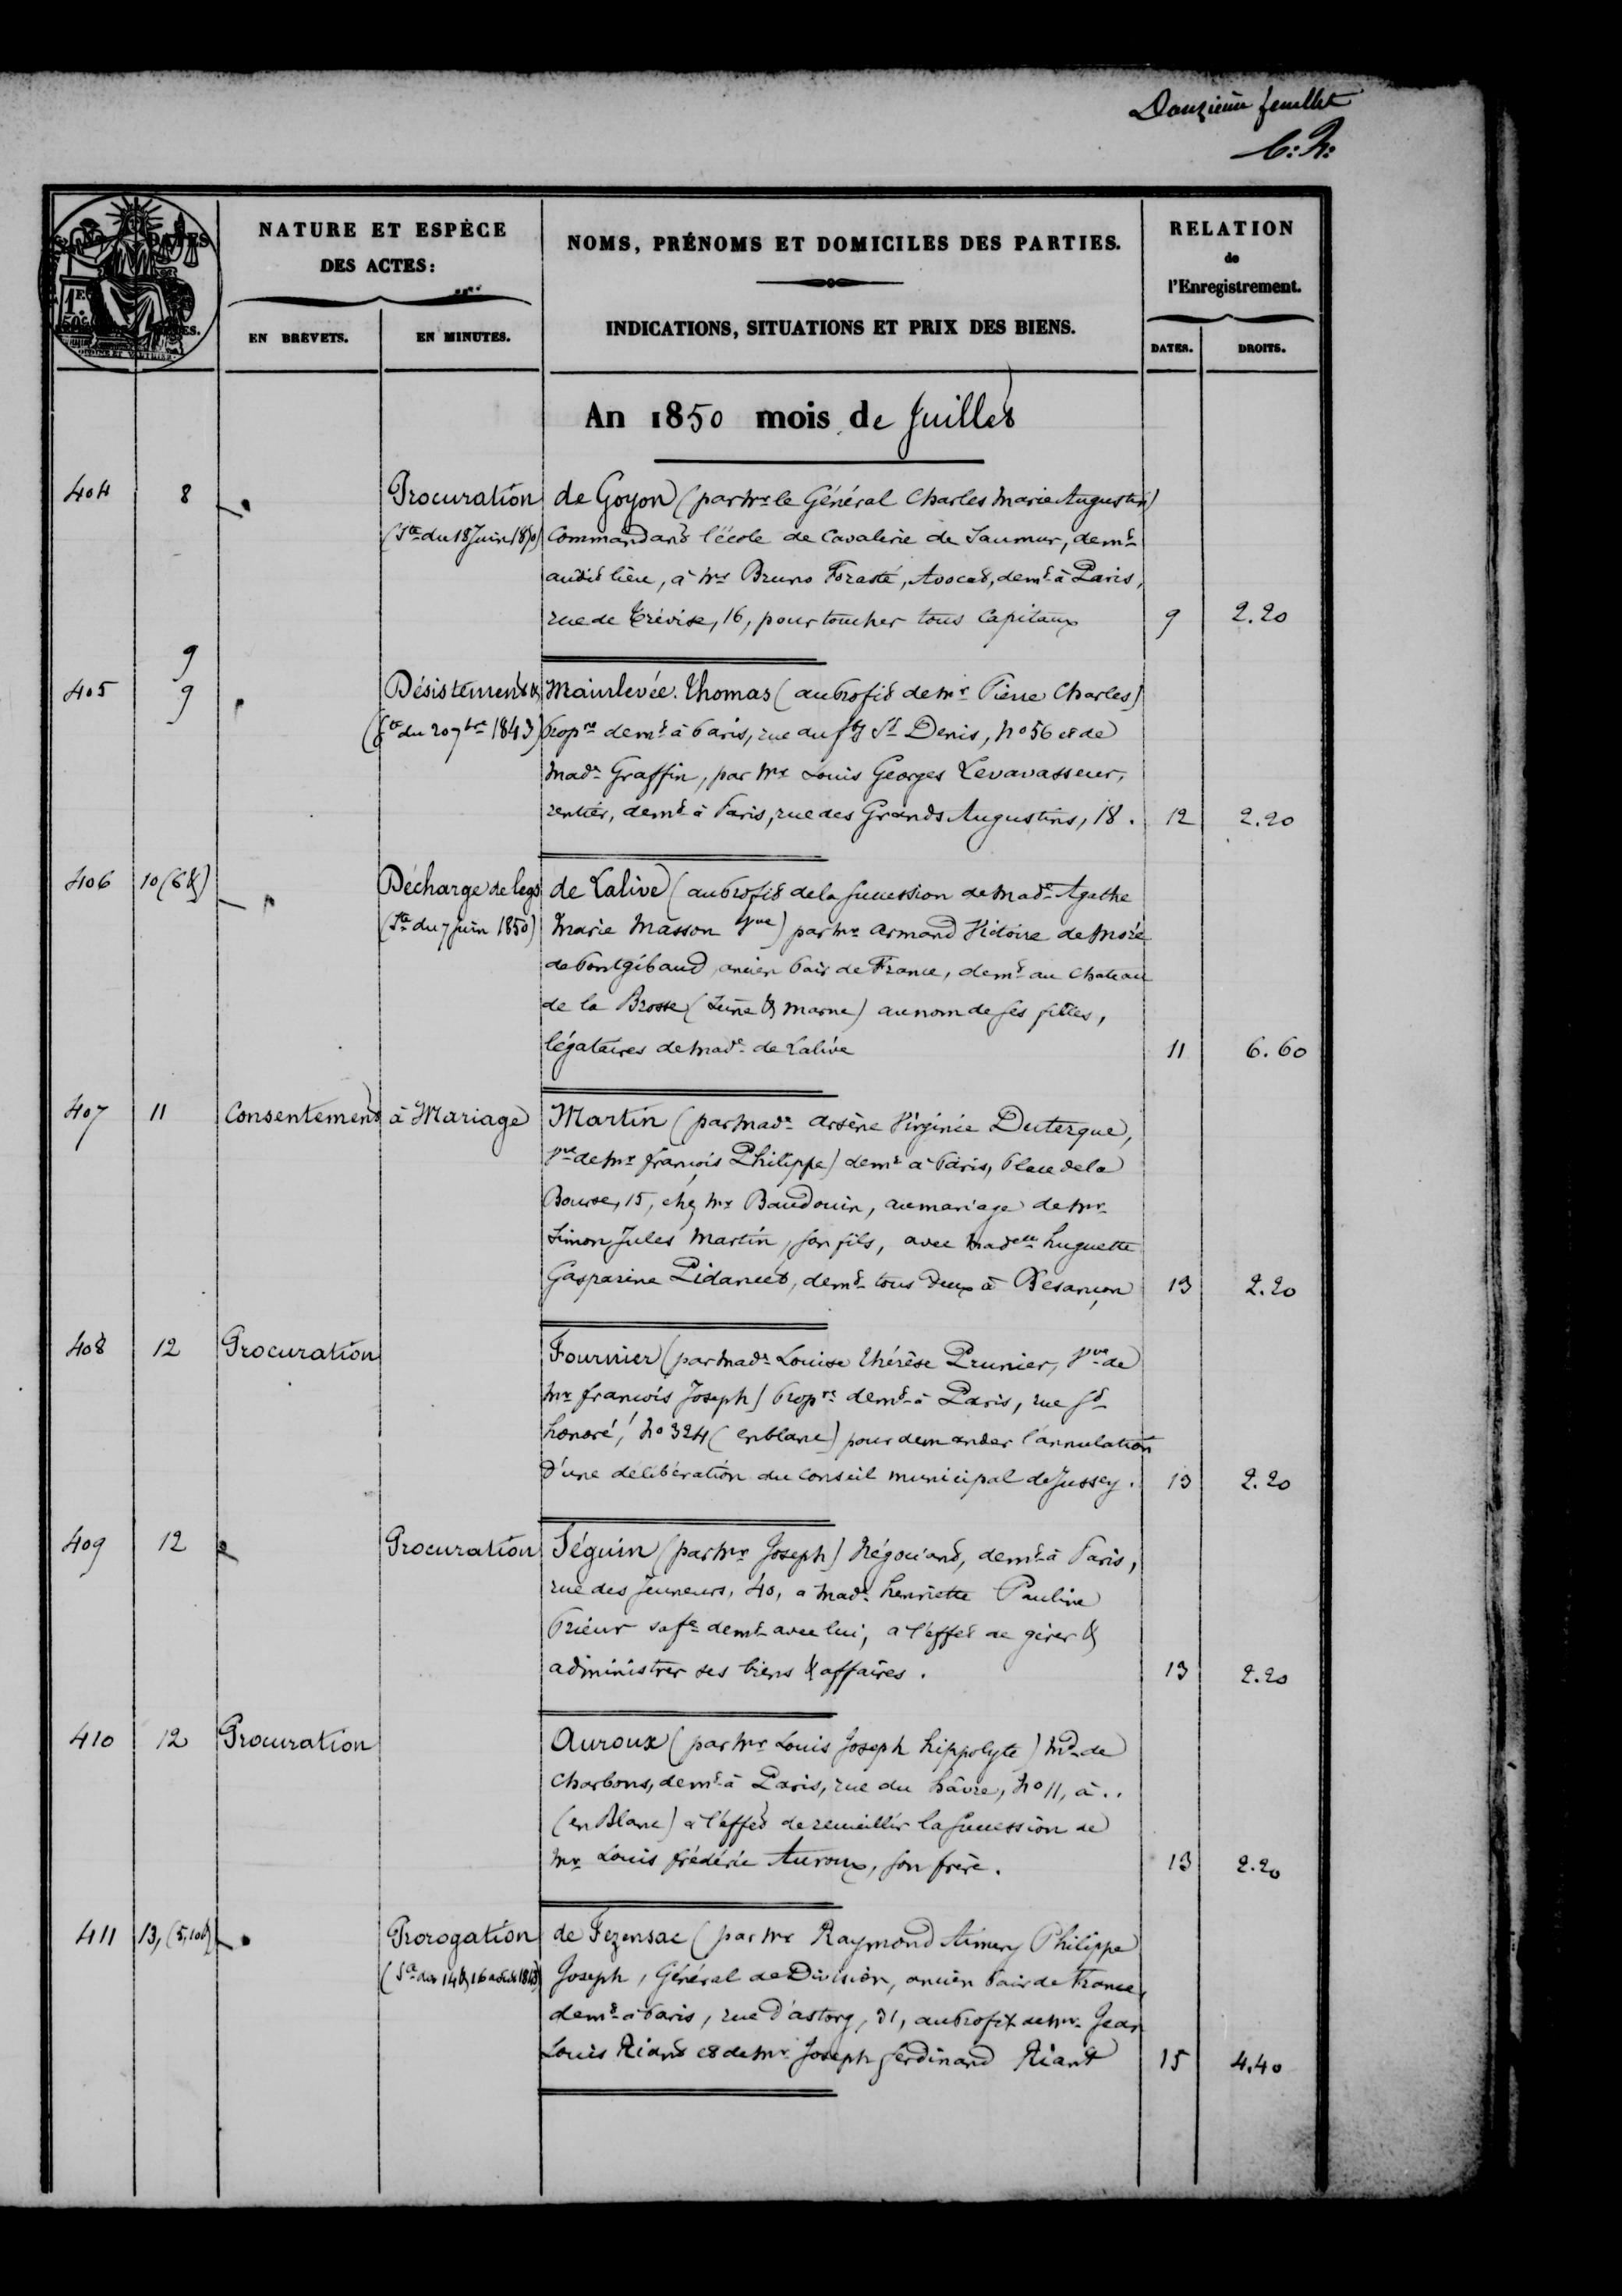 Douzième feuillet
NATURE ET ESPÈCE
DES ACTES:
EN BREVETS.
EN MINUTES.
NOMS, PRÉNOMS ET DOMICILES DES PARTIES.
INDICATIONS, SITUATIONS ET PRIX DES BIENS.
RELATION
de
l'Enregistrement.
DATES.
DROITS.
An 1850 mois de Juillet
404 8 Procuration de Goyon (par Mr le Général Charles Marie Augustin)
(Ste du 18 Juin 1850) Commandant l'école de Cavalerie de Saumur, demt
audit lieu, à Mr Bruno Forasté, Avocat, demt à Paris,
rue de Trévise, 16, pour toucher tous Capitaux 9 2.20
9
405 9 Désistement & Mainlevée. Thomas (au Profit de Mr Pierre Charles)
(Ste du 20 7bre 1843) Propre demt à Paris, rue du fg St Denis, No 56 et de
Made Graffin, par Mr Louis Georges Levavasseur,
rentier, demt à Paris, rue des Grands Augustins, 18. 12 2.20
406 10 (6 &) Décharge de legs de Lalive (au Profit de la succession de Made Agathe
(Ste du 7 Juin 1850) Marie Masson Vve) par Mr Armand Victoire de Moré
de Pontgibaud ancien Pair de France, demt au Chateau
de la Brosse (Seine & Marne) au nom de ses filles,
légataires de Made de Lalive 11 6.60
407 11 Consentement à Mariage Martin (par Made Arsène Virginie Duterque,
Vve de Mr françois Philippe) demt à Paris, Place de la
Bourse, 15, chez Mr Baudouin, au mariage de Mr
Simon Jules Martin, son fils, avec Madelle huguette
Gasparine Pidancet, demt tous deux à Besançon 13 2.20
408 12 Procuration Fournier (par Made Louise Thérèse Prunier, Vve de
Mr françois Joseph) Propre demt à Paris, rue St
honoré, No 324 (en blanc) pour demander l'annulation
d'une délibération du Conseil municipal de Jussey. 13 2.20
409 12 Procuration Séguin (par Mr Joseph) Négociant, demt à Paris,
rue des Jeuneurs, 40, a Made henriette Pauline
Prieur sa fe demt avec lui, a l'effet de gérer &
administrer ses biens & affaires. 13 2.20
410 12 Procuration Auroux (par Mr Louis Joseph hippolyte) Md de
Charbons, demt à Paris, rue du hâvre, No 11, à..
(en Blanc) à l'effet de recueillir la succession de
Mr Louis frédéric Auroux, son frère. 13 2.20
411 13, (5, 10 &) Prorogation de Fezensac (par Mr Raymond Aimery Philippe
(Ste des 14 & 16 août 1843) Joseph, Général de Division, ancien Pair de France,
demt à Paris, rue d'astorg, 31, au Profit de Mr Jean
Louis Riant et de Mr Joseph ferdinand Riant 15 4.40